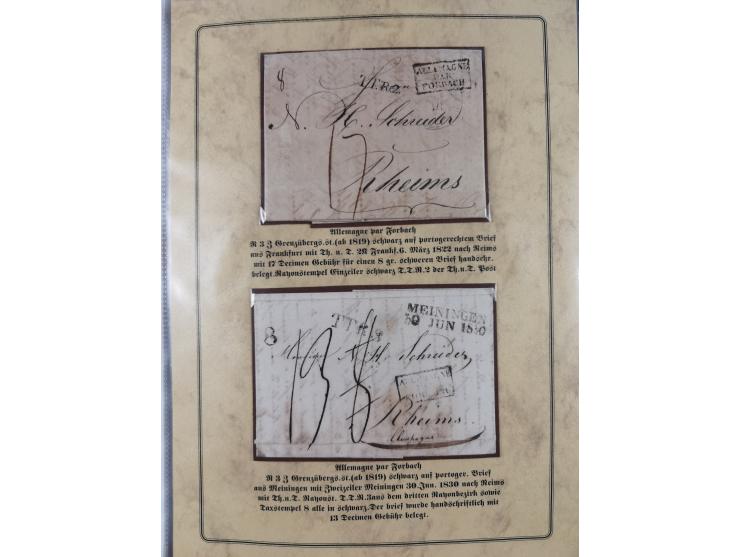 8
T.T.R.2
ALLEMAGNE
PAR
FORBACH
N. H. Schreider
17
Rheims
Allemagne par Forbach
R 3 Z Grenzübergs.st.(ab 1819) schwarz auf portogerechtem Brief
aus Frankfurt mit Th. u. T. 2R Frankf.6. März 1822 nach Reims
mit 17 Decimen Gebühr für einen 8 gr. schweren Brief handschr.
belegt.Rayonstempel Einzeiler schwarz T.T.R.2 der Th.u.T. Post
MEININGEN
30 JUN 1830
8
Monsieur N. H. Schreider,
13
ALLEMAGNE
Rheims
Champagne
Allemagne par Forbach
R 3 Z Grenzübergs.st.(ab 1819) schwarz auf portoger. Brief
aus Meiningen mit Zweizeiler Meiningen 30.Jun. 1830 nach Reims
mit Th.u.T. Rayonst. T.T.R.3aus dem dritten Rayonbezirk sowie
Taxstempel 8 alle in schwarz.Der brief wurde handschriftlich mit
13 Decimen Gebühr belegt.